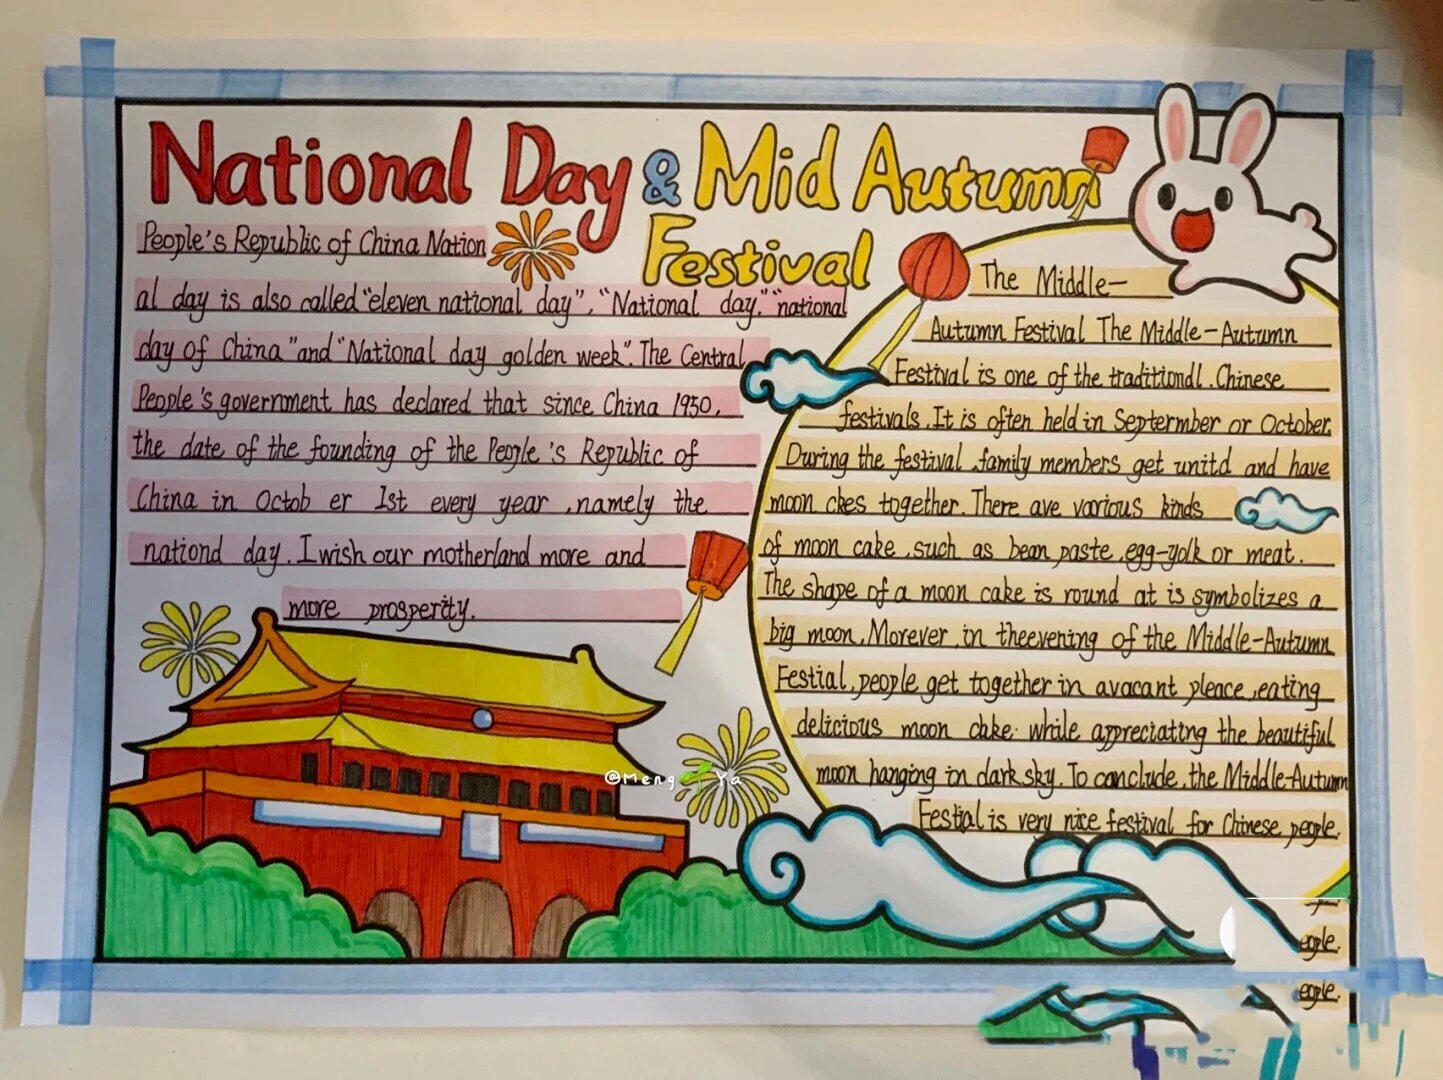 National Day & Mid Autumn
Festival
People's Republic of China Nation
al day is also called "eleven national day", "National day." "national
day of China" and "National day golden week". The Central
People's government has declared that since China 1950,
the date of the founding of the People's Republic of
China in Octob er 1st every year, namely the
nationd day. I wish our motherland more and
more prosperity.
The Middle-
Autumn Festival The Middle-Autumn
Festival is one of the traditiondl. Chinese
festivals. It is often held in Septermber or October.
During the festival, family members get unitd and have
moon ckes together. There ave various kinds
of moon cake, such as bean paste, egg-yolk or meat.
The shape of a moon cake is round at is symbolizes a
big moon. Morever, in theevening of the Middle-Autumn
Festial, people get together in avacant pleace, eating
delicious moon cake. while appreciating the beautiful
moon hanging in dark sky. To conclude, the Middle-Autumn
Festial is very nice festival for Chinese people.
@Meng Ya
eople.
eople.